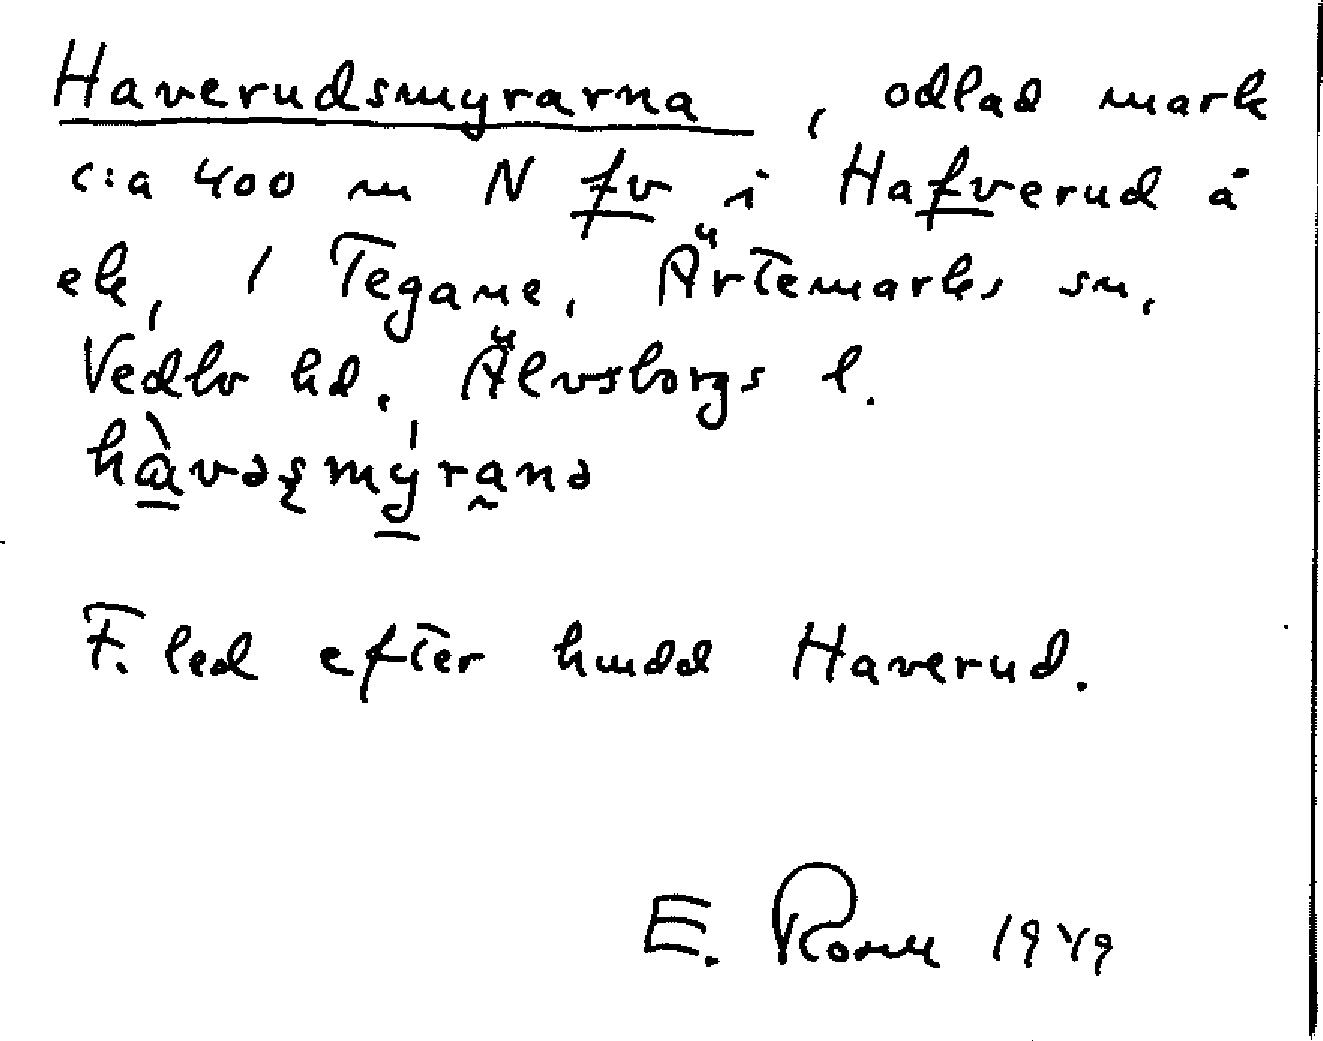 Haverudsmyrarna, odlad mark
c:a 400 m N fv i Hafverud å
ek, 1 Tegane, Ärtemarks sn,
Vedbo hd, Älvsborgs l.
hàvəʂmýrana
F. led efter hmdd Haverud.
E. 1949